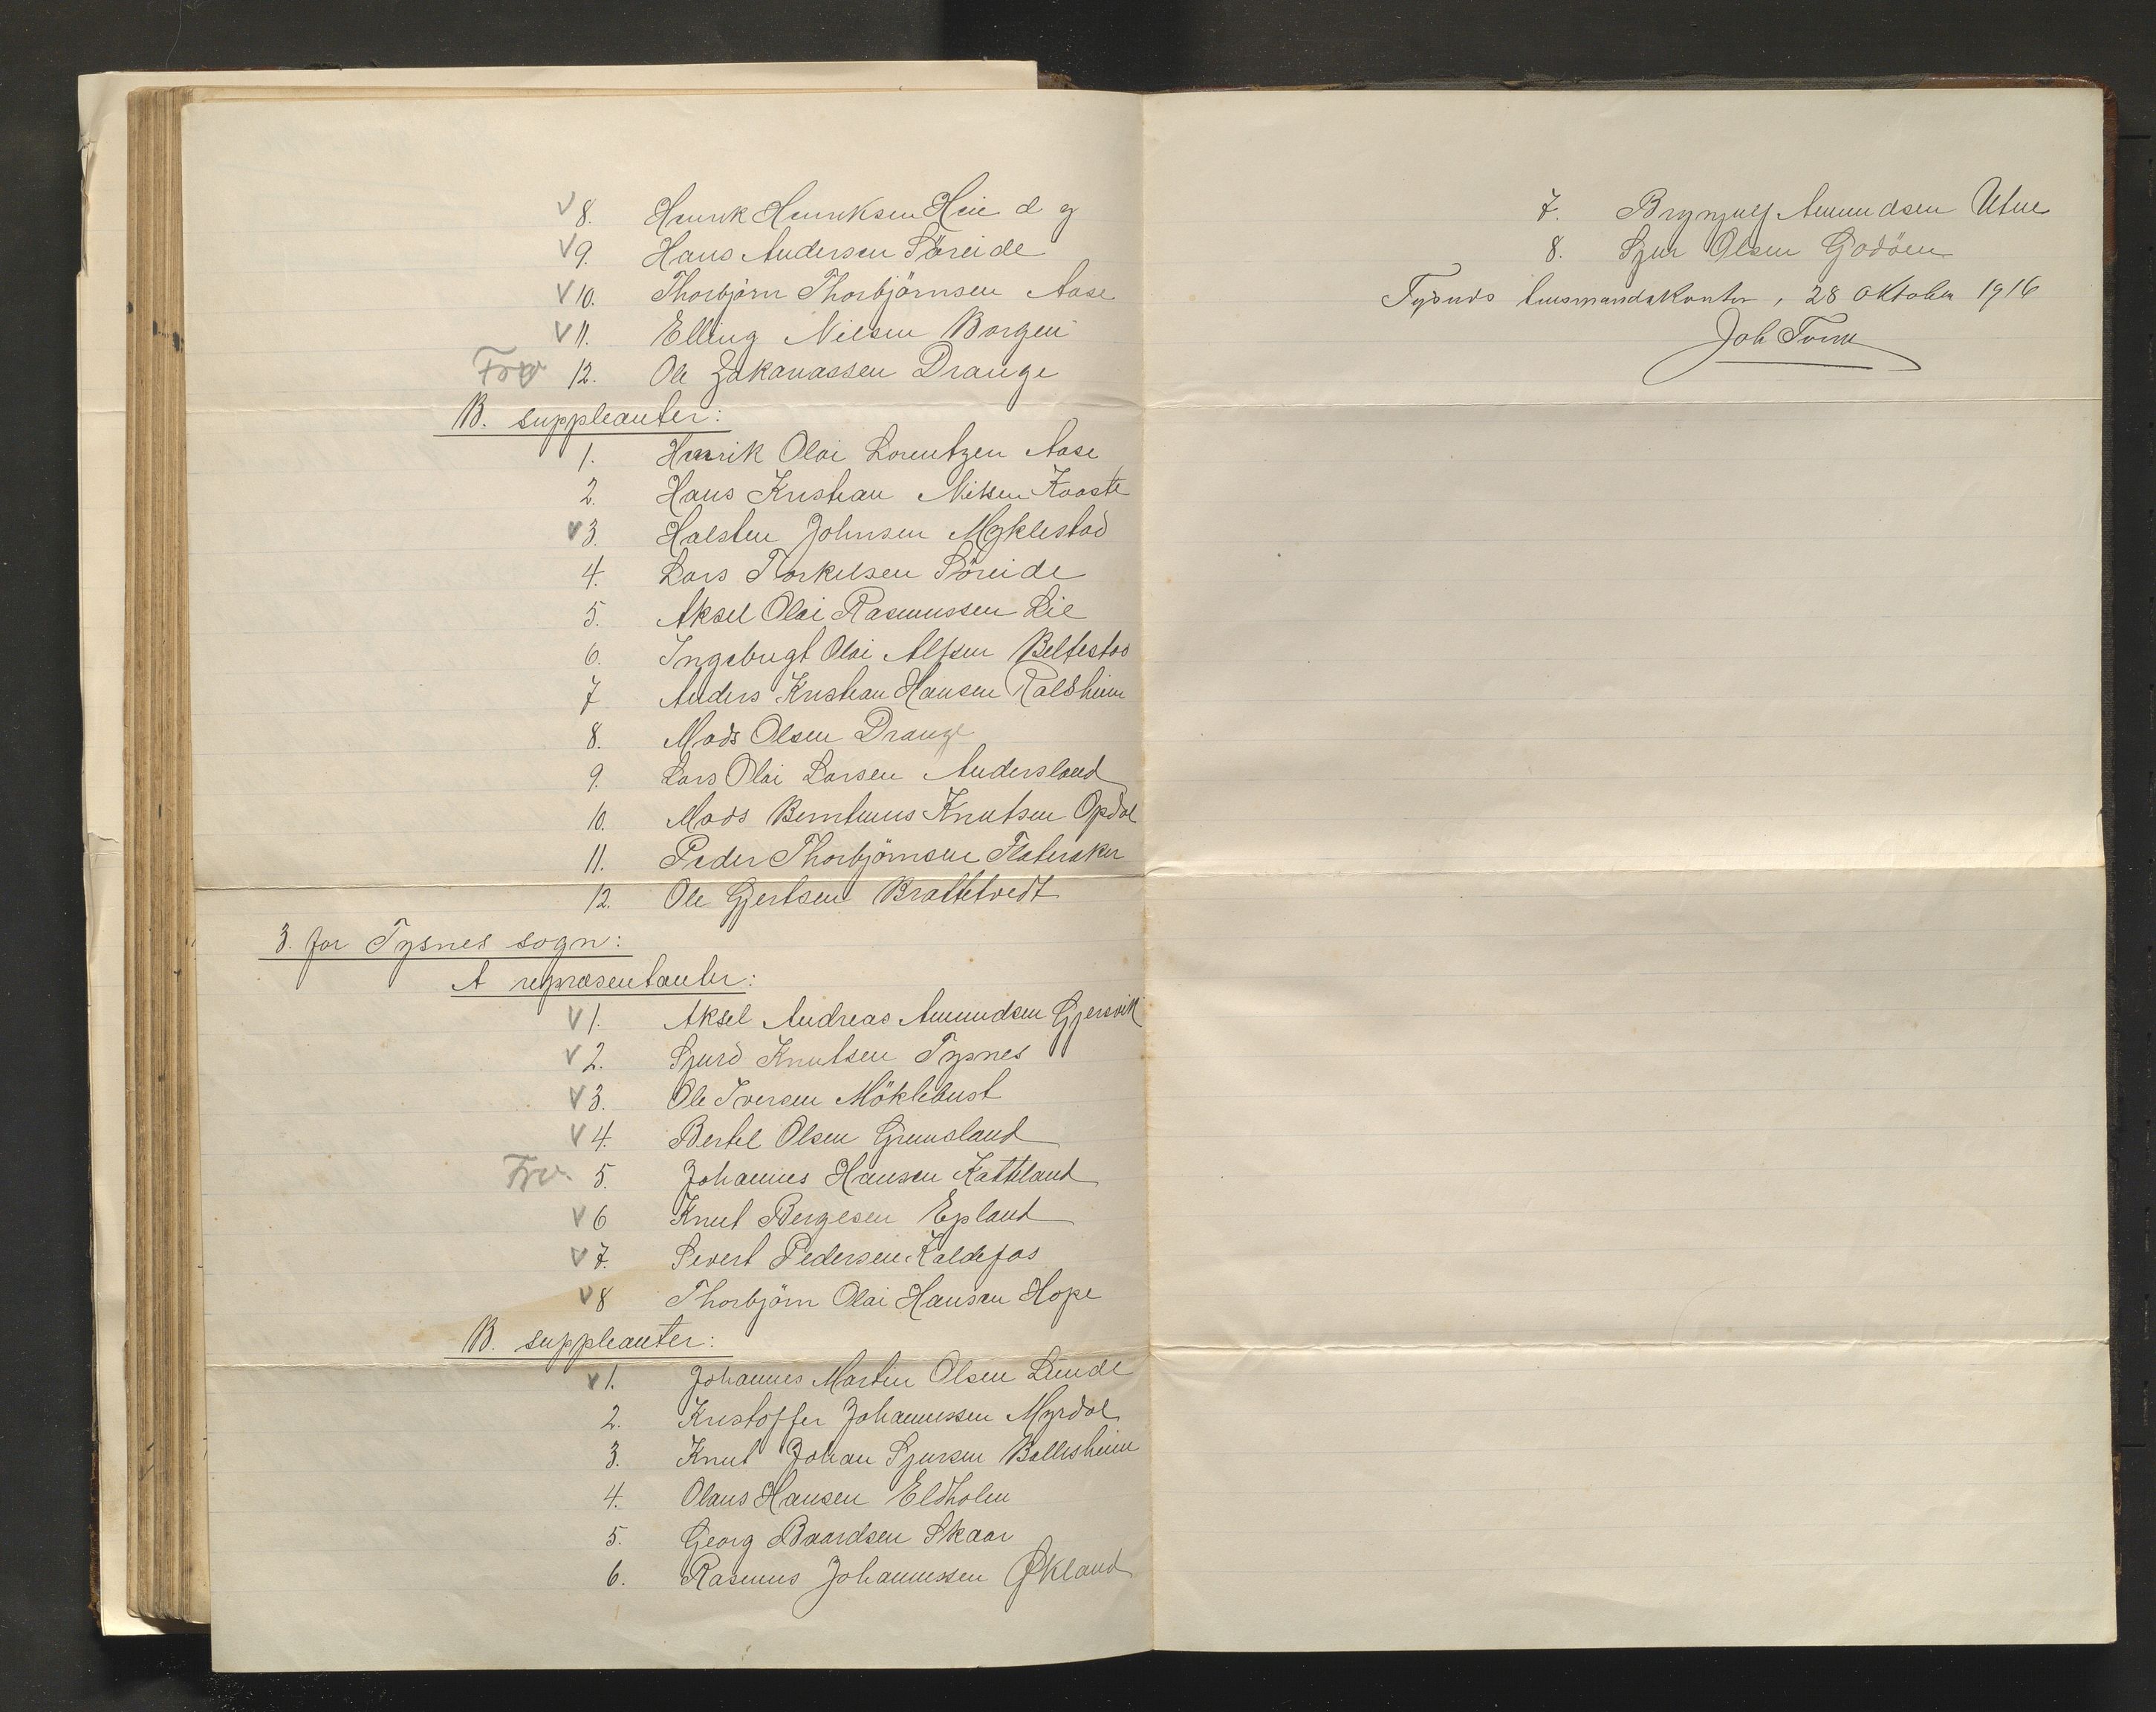 V 8. Henrik Henriksen Heie d y
V 9. Hans Andersen Söreide
V 10. Thorbjörn Thorbjörnsen Aase
V 11. Elling Nilsen Borgen
Frv 12. Ole Zakariassen Drange
B. suppleanter:
1. Henrik Olai Lorentzen Aase
2. Hans Kristian Nilsen
V 3. Halsten Johnsen Myklestad
4. Lars Torkelsen Söreide
5. Aksel Olai Rasmussen Lie
6. Ingebrigt Olai Beltestad
7 Anders Kristian Hansen Raldheim
8. Mads Olsen Drange
9. Lars Olai Larsen Andersland
10. Mads Berntinus Knutsen Opdal
11. Peder Thorbjörnsen Flateraker
12. Ole Gjertsen Brattetvedt
3. for Tysnes sogn:
A repræsentanter:
V 1. Aksel Andreas Amundsen Gjersvik
V 2. Sjurd Knutsen Tysnes
V 3. Ole Iversen Möklebust
V 4. Bertel Olsen Grimsland
Frv. 5. Johannes Hansen Katteland
V 6 Knut Bergesen Epland
V 7. Sivert Pedersen Kaldefos
V 8 Thorbjörn Olai Hansen Hope
B. suppleanter:
V 1. Johannes Martin Olsen Lunde
2. Kristoffer Johannessen Myrdal
3. Knut Johan Sjursen Ballesheim
4. Olaus Hansen Eldholm
5. Georg Baardsen Skaar
6. Rasmus Johannessen Økland
7. Brynjulf Amundsen Utne
8. Sjur Olsen Godöen
Tysnes lensmandskontor, 28 Oktober 1916
Joh